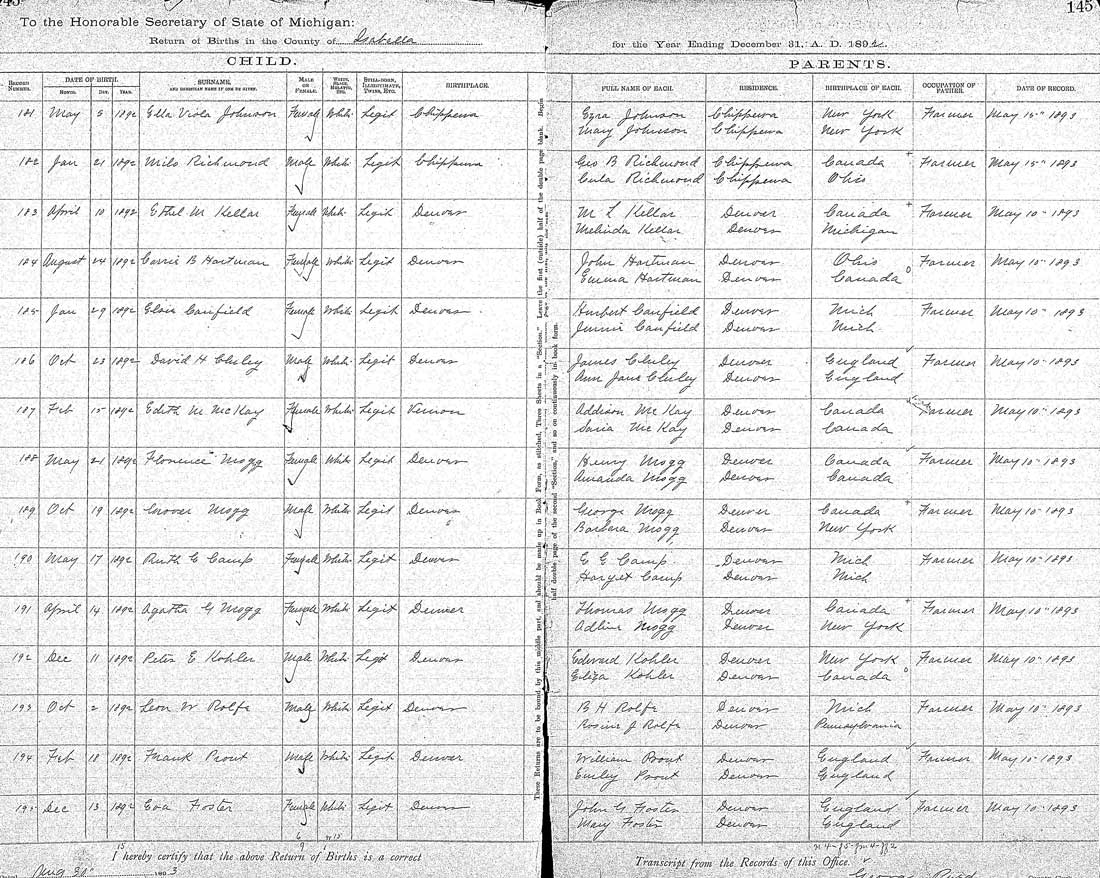 145
To the Honorable Secretary of State of Michigan:
Return of Births in the County of Isabella for the Year Ending December 31, A. D. 1892
CHILD. PARENTS.
RECORD NUMBER. DATE OF BIRTH. MONTH. DAY. YEAR. SURNAME, AND CHRISTIAN NAME IF ONE BE GIVEN. MALE OR FEMALE. WHITE, BLACK, MULATTO, ETC. STILL-BORN, ILLEGITIMATE, TWINS, ETC. BIRTHPLACE. FULL NAME OF EACH. RESIDENCE. BIRTHPLACE OF EACH. OCCUPATION OF FATHER. DATE OF RECORD.
181 May 5 1892 Ella Viola Johnson Female White Legit Chippewa Ezra Johnson Chippewa New York Farmer May 15" 1893
Mary Johnson Chippewa New York
182 Jan 21 1892 Milo Richmond Male White Legit Chippewa Geo B Richmond Chippewa Canada Farmer May 15" 1893
Richmond Chippewa Ohio
183 April 10 1892 Ethel M Kellar Female White Legit Denver M L Kellar Denver Canada Farmer May 10" 1893
Melinda Kellar Denver Michigan
184 August 24 1892 Carrie B Hartman Female White Legit Denver John Hartman Denver Ohio Farmer May 10" 1893
Emma Hartman Denver Canada
185 Jan 29 1892 Canfield Female White Legit Denver Hurbert Canfield Denver Mich Farmer May 10" 1893
Jennie Canfield Denver Mich
186 Oct 23 1892 David H Cluley Male White Legit Denver James Cluley Denver England Farmer May 10" 1893
Ann Jane Cluley Denver England
187 Feb 15 1892 Edith M McKay Female White Legit Vernon Addison McKay Denver Canada Farmer May 10" 1893
McKay Denver Canada
188 May 21 1892 Florence Mogg Female White Legit Denver Henry Mogg Denver Canada Farmer May 10" 1893
Amanda Mogg Denver Canada
189 Oct 19 1892 Grover Mogg Male White Legit Denver George Mogg Denver Canada Farmer May 10" 1893
Barbara Mogg Denver New York
190 May 17 1892 Ruth E Camp Female White Legit Denver E E Camp Denver Mich Farmer May 10" 1893
Camp Denver Mich
191 April 14 1892 Agatha G Mogg Female White Legit Denver Thomas Mogg Denver Canada Farmer May 10" 1893
Adline Mogg Denver New York
192 Dec 11 1892 Peter E Kohler Male White Legit Denver Edward Kohler Denver New York Farmer May 10" 1893
Eliza Kohler Denver Canada
193 Oct 2 1892 Leon W Rolfe Male White Legit Denver B H Rolfe Denver Mich Farmer May 10" 1893
Rosine J Rolfe Denver Pennsylvania
194 Feb 18 1892 Frank Prout Male White Legit Denver William Prout Denver England Farmer May 10" 1893
Emley Prout Denver England
195 Dec 13 1892 Eva Foster Female White Legit Denver John G Foster Denver England Farmer May 10" 1893
Mary Foster Denver England
I hereby certify that the above Return of Births is a correct Transcript from the Records of this Office.
Aug 30" 1893